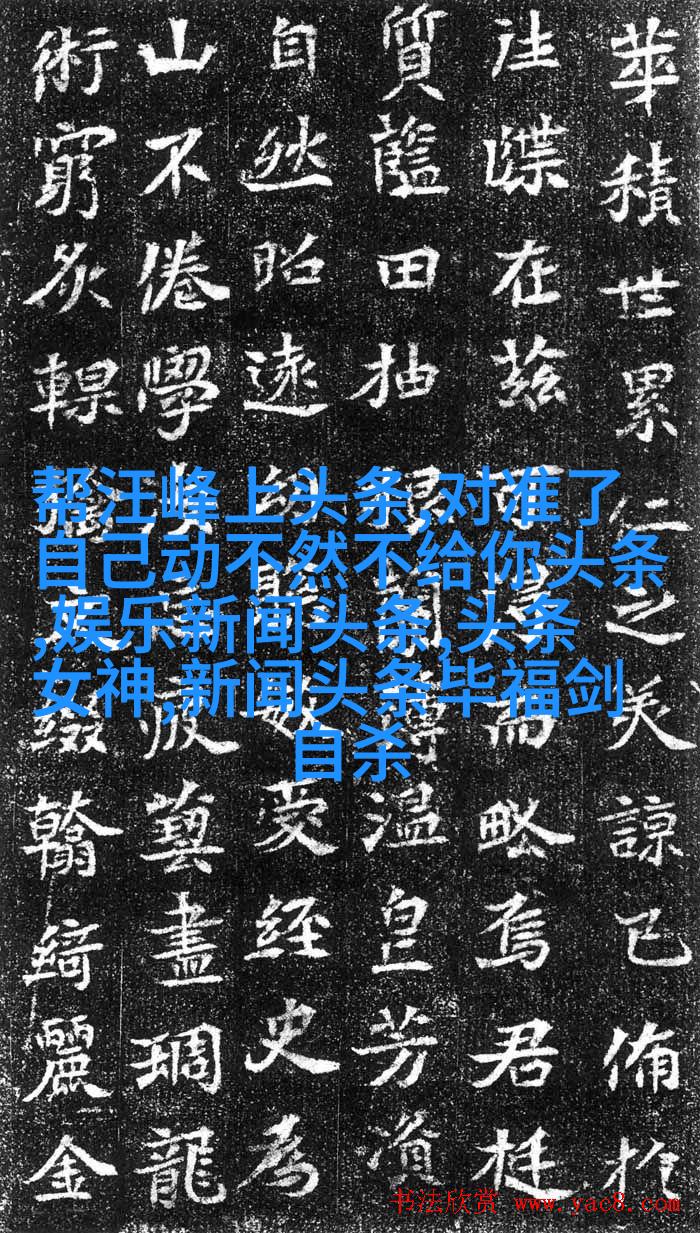 華積世累仁之美諒已備於
諜在茲而略焉君挺
質藍田抽溫芳資
自然昭遠幼愛經史為
山不倦學疲藝盡琱龍
術窮炙輠綴翰綺麗金
帮汪峰上头条,对准了
自己动不然不给你头条
,娱乐新闻头条,头条
女神,新闻头条毕福剑
自杀
书法欣赏 www.yac8.com